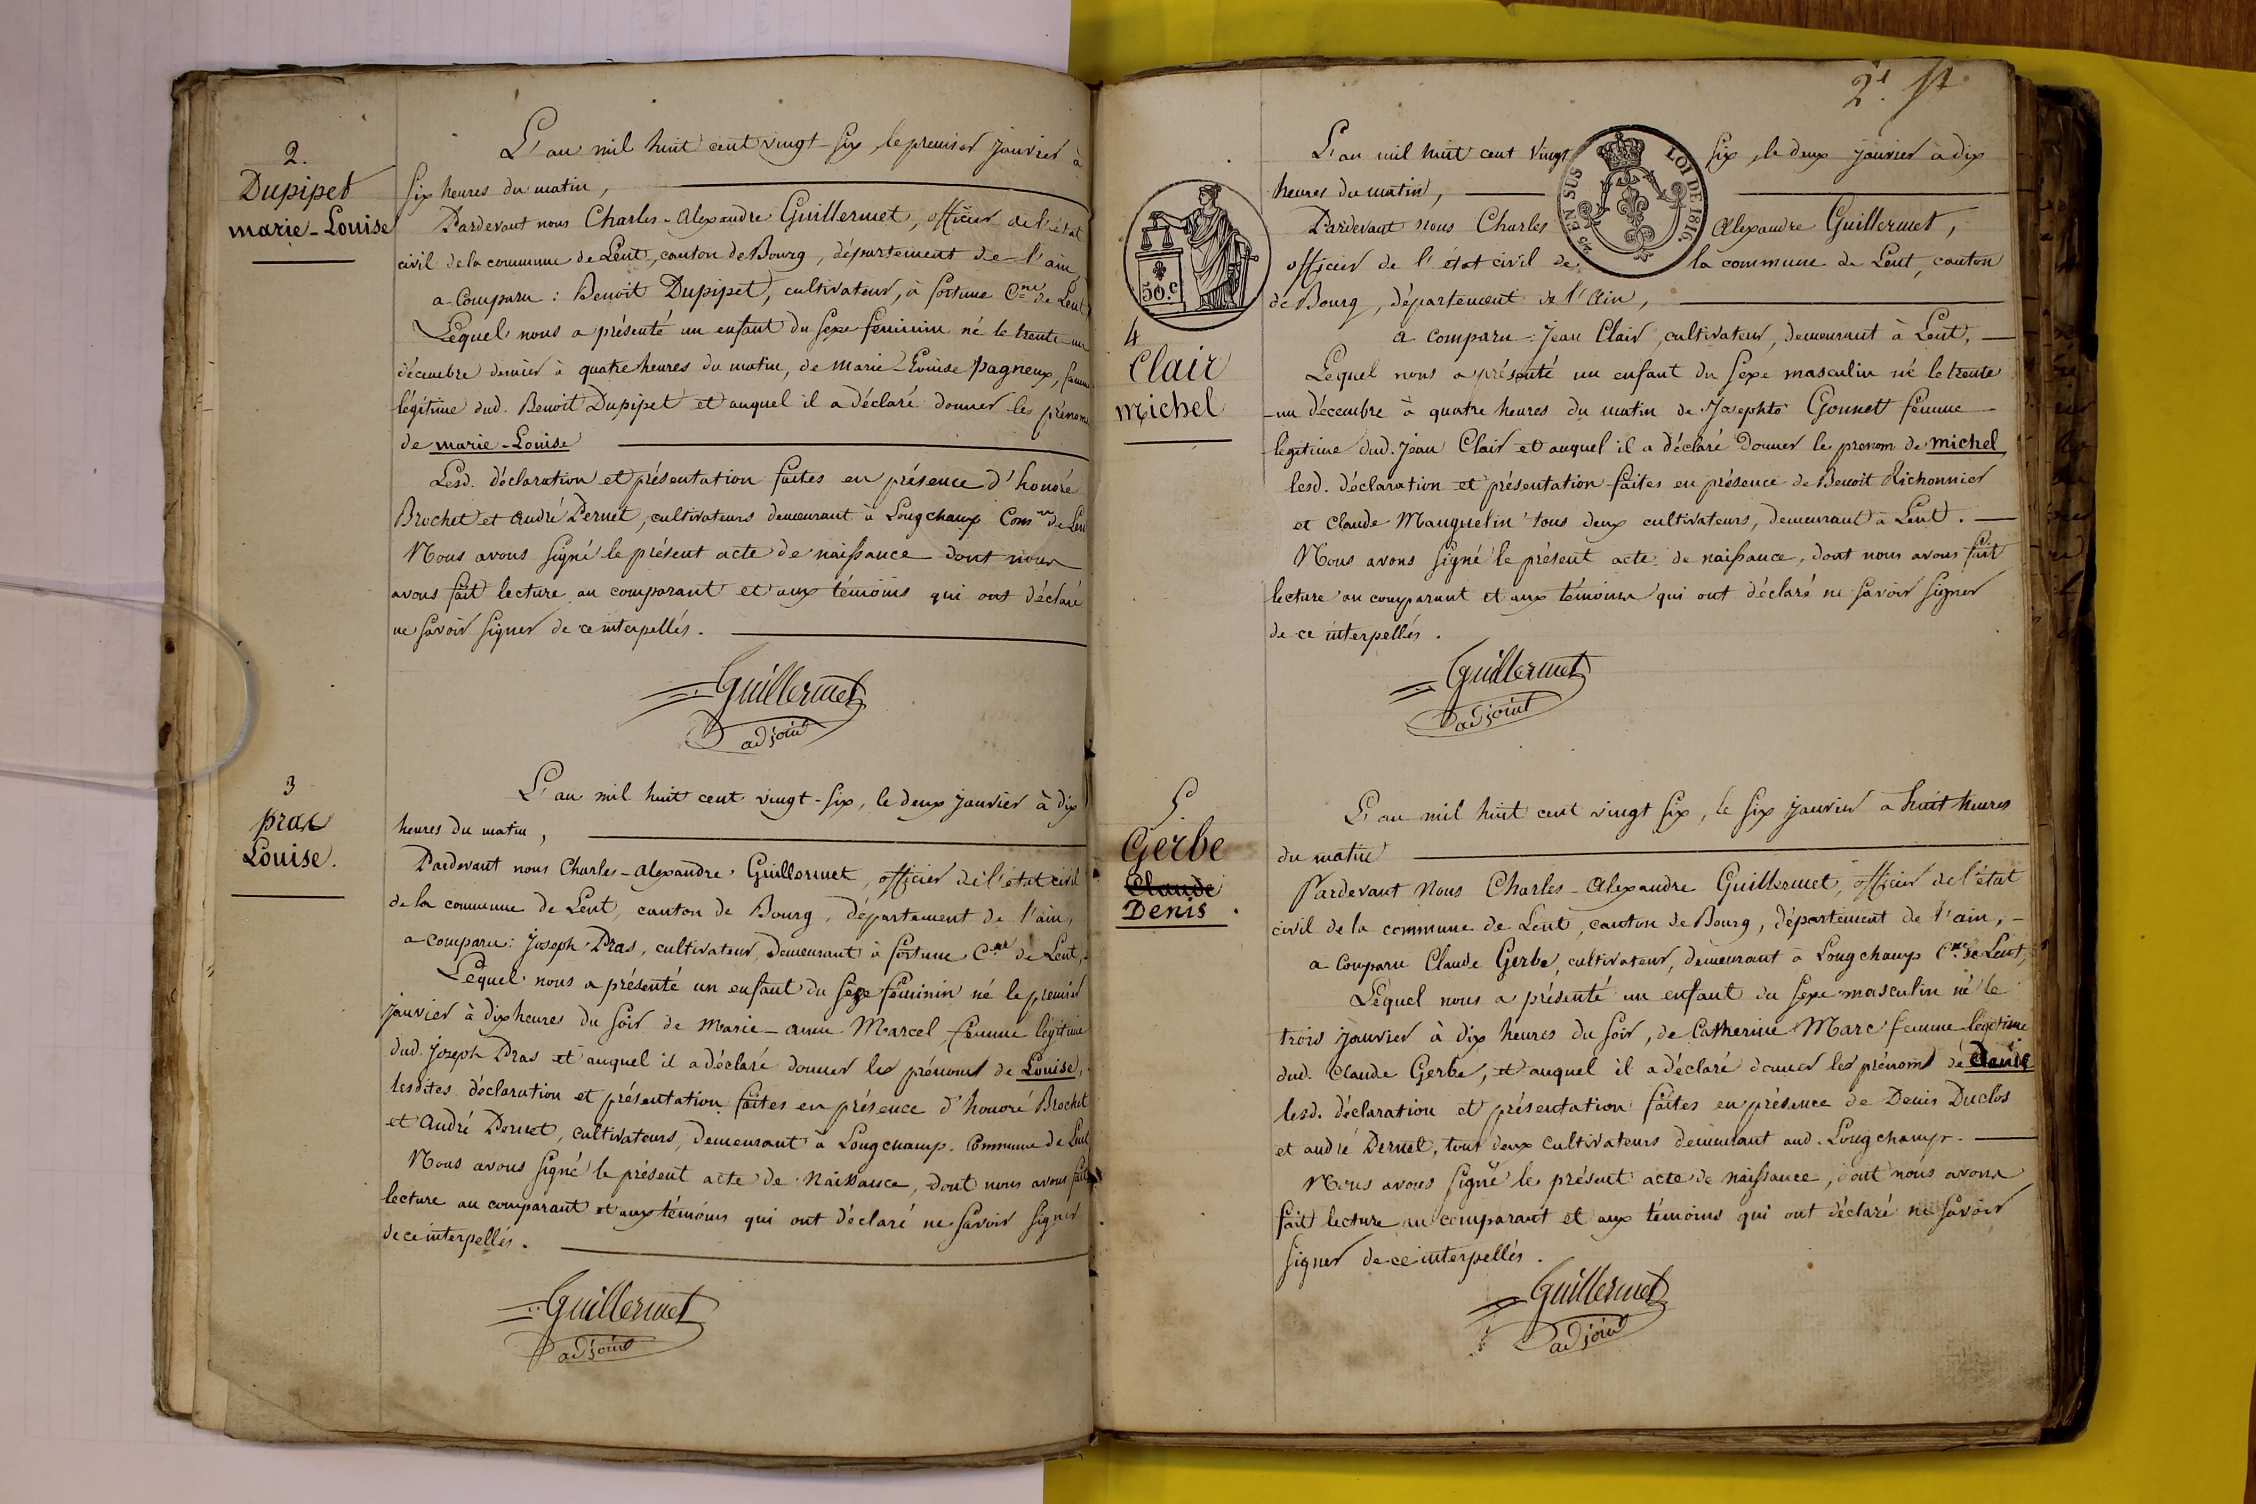 2.
Dupipet
marie-Louise
L'an mil huit cent vingt-six, le premier janvier à
six heures du matin,
Pardevant nous Charles-Alexandre Guillermet, officier de l'état
civil de la commune de Lent, canton de Bourg, département de l'ain,
a comparu : Benoit Dupipet, cultivateur, à fortune Cne de Lent
Lequel nous a présenté un enfant du sexe féminin né le trente un
décembre dernier à quatre heures du matin, de Marie-Louise Pagneux, femme
légitime dud. Benoit Dupipet et auquel il a déclaré donner les prénoms
de marie-Louise
Lesd. déclaration et présentation faites en présence d'honoré
Brochet et andré Pernet, cultivateurs demeurant à Longchamp Comne de Lent
Nous avons signé le présent acte de naissance dont nous
avons fait lecture au comparant et aux témoins qui ont déclaré
ne savoir signer de ce interpellés.
Guillermet
adjoint
3
pras
Louise.
L'an mil huit cent vingt-six, le deux janvier à dix
heures du matin,
Pardevant nous Charles-alexandre Guillermet, officier de l'état civil
de la commune de Lent, canton de Bourg, département de l'ain,
a comparu : Joseph Pras, cultivateur, demeurant à fortune Cne de Lent,
Lequel nous a présenté un enfant du sexe féminin né le premier
janvier à dix heures du soir de Marie-anne Marcel femme légitime
dud. Joseph Pras et auquel il a déclaré donner les prénoms de Louise,
lesdites déclaration et présentation faites en présence d'honoré Brochet
et André Pernet, cultivateurs, demeurant à Longchamp. Commune de Lent
Nous avons signé le présent acte de Naissance, dont nous avons fait
lecture au comparant et aux témoins qui ont déclaré ne savoir signer
de ce interpellés.
Guillermet
adjoint
2e
25 EN SUS LOI DE 1816
50.c
4
Clair
Michel
L'an mil huit cent vingt six, le deux janvier à dix
heures du matin,
Pardevant nous Charles Alexandre Guillermet,
officier de l'état civil de la commune de Lent, canton
de Bourg, département de l'Ain,
a comparu : Jean Clair, cultivateur, demeurant à Lent,
Lequel nous a présenté un enfant du sexe masculin né le trente
un décembre à quatre heures du matin de Josephte Gonnett femme
légitime dud. Jean Clair et auquel il a déclaré donner le prenom de michel,
lesd. déclaration et présentation faites en présence de Benoit Richonnier
et Claude Manguelin tous deux cultivateurs, demeurant à Lent.
Nous avons signé le présent acte de naissance, dont nous avons fait
lecture au comparant et aux témoins qui ont déclaré ne savoir signer
de ce interpellés.
Guillermet
adjoint
5.
Gerbe
Claude
Denis.
L'an mil huit cent vingt six, le six janvier a huit heures
du matin
Pardevant Nous Charles-Alexandre Guillermet, officier de l'état
civil de la commune de Lent, canton de Bourg, département de l'ain,
a comparu Claude Gerbe, cultivateur, demeurant à Longchamp Cne de Lent,
Lequel nous a présenté un enfant du sexe masculin né le
trois janvier à dix heures du soir, de Catherine Marc femme légitime
dud. Claude Gerbe, et auquel il a déclaré donner les prénoms de Denis
lesd. déclaration et présentation faites en présence de Denis Duclos
et andré Pernet, tous deux cultivateurs demeurant aud. Longchamp.
Nous avons signé le présent acte de naissance, dont nous avons
fait lecture au comparant et aux témoins qui ont déclaré ne savoir
signer de ce interpellés.
Guillermet
adjoint